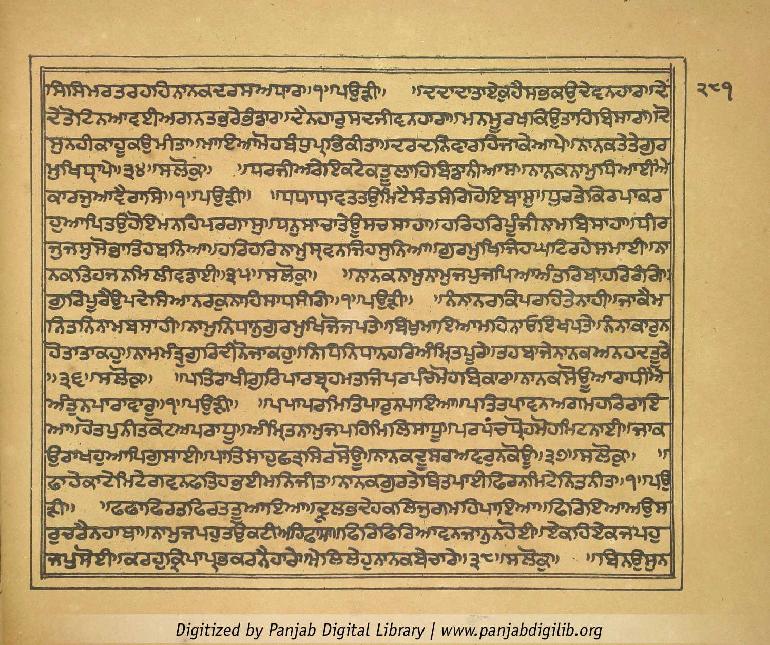 ਸਿਸਿਮਰਤਰਹਹਿਨਾਨਕਦਰਸਅਧਾਰ॥੧॥ਪਉੜੀ॥ ॥ਦਦਾਦਾਤਾਏਕੁਹੈਸਭਕਉਦੇਵਨਹਾਰ॥ਦੇਂ
ਦੇਤੋਟਿਨਆਵਈਅਗਨਤਭਰੇਭੰਡਾਰ॥ਦੈਨਹਾਰੁਸਦਜੀਵਨਹਾਰਾ॥ਮਨਮੂਰਖਕਿਉਤਾਹਿਬਿਸਾਰਾ॥ਦੋ
ਸੁਨਹੀਕਾਹੂਕਉਮੀਤਾ॥ਮਾਇਆਮੋਹਬੰਧੁਪ੍ਰਭਿਕੀਤਾ॥ਦਰਦਨਿਵਾਰਹਿਜਾਕੇਆਪੇ॥ਨਾਨਕਤੇਤੇਗੁਰ
ਮੁਖਿਧ੍ਰਾਪੇ॥੩੪॥ਸਲੋਕੁ॥ ॥ਧਰਜੀਅਰੇਇਕਟੇਕਤੂਲਾਹਿਬਿਡਾਨੀਆਸ॥ਨਾਨਕਨਾਮੁਧਿਆਈਐ
ਕਾਰਜੁਆਵੈਰਾਸਿ॥੧॥ਪਉੜੀ॥ ॥ਧਧਾਧਾਵਤਤਉਮਿਟੈਸੰਤਸੰਗਿਹੋਇਬਾਸੁ॥ਧੁਰਤੇਕਿਰਪਾਕਰ
ਹੁਆਪਿਤਉਹੋਇਮਨਹਿਪਰਗਾਸੁ॥ਧਨੁਸਾਚਾਤੇਊਸਚਸਾਹਾ॥ਹਰਿਹਰਿਪੂੰਜੀਨਾਮਬਿਸਾਹਾ॥ਧੀਰ
ਜੁਜਸੁਸੋਭਾਤਿਹਬਨਿਆ॥ਹਰਿਹਰਿਨਾਮੁਸ੍ਰਵਨਜਿਹਸੁਨਿਆ॥ਗੁਰਮੁਖਿਜਿਹਘਟਿਰਹੇਸਮਾਈ॥ਨਾ
ਨਕਤਿਹਜਨਮਿਲੀਵਡਾਈ॥੩੫॥ਸਲੋਕੁ॥ ॥ਨਾਨਕਨਾਮੁਨਾਮੁਜਪੁਜਪਿਆਅੰਤਰਿਬਾਹਰਿਰੰਗਿ॥
ਗੁਰਿਪੂਰੈਉਪਦੇਸਿਆਨਰਕੁਨਾਹਿਸਾਧਸੰਗਿ॥੧॥ਪਉੜੀ॥ ॥ਨੰਨਾਨਰਕਿਪਰਹਿਤੇਨਾਹੀ॥ਜਾਕੈਮ
ਨਿਤਨਿਨਾਮਬਸਾਹੀ॥ਨਾਮੁਨਿਧਾਨੁਗੁਰਮੁਖਿਜੋਜਪਤੇ॥ਬਿਖੁਮਾਇਆਮਹਿਨਾਓਇਖਪਤੇ॥ਨੰਨਾਕਾਰੁਨ
ਹੋਤਾਤਾਕਹੁ॥ਨਾਮਮੰਤ੍ਰੁਗੁਰਿਦੀਨੋਜਾਕਹੁ॥ਨਿਧਿਨਿਧਾਨਹਰਿਅੰਮ੍ਰਿਤਪੂਰੇ॥ਤਹਬਾਜੇਨਾਨਕਅਨਹਦਤੂਰੇ
॥੩੬॥ਸਲੋਕੁ॥ ॥ਪਤਿਰਾਖੀਗੁਰਿਪਾਰਬ੍ਰਹਮਤਜਿਪਰਪੰਚਮੋਹਬਿਕਾਰ॥ਨਾਨਕਸੋਊਆਰਾਧੀਐ
ਅੰਤੁਨਪਾਰਾਵਾਰੁ॥੧॥ਪਉੜੀ॥ ॥ਪਪਾਪਰਮਿਤਿਪਾਰੁਨਪਾਇਆ॥ਪਤਿਤਪਾਵਨਅਗਮਹਰਿਰਾਇ
ਆ॥ਹੋਤਪੁਨੀਤਕੋਟਅਪਰਾਧੂ॥ਅੰਮ੍ਰਿਤਨਾਮੁਜਪਹਿਮਿਲਿਸਾਧੂ॥ਪਰਪੰਚਧ੍ਰੋਹਮੋਹਮਿਟਨਾਈ॥ਜਾਕ
ਉਰਾਖਹੁਆਪਿਗੁਸਾਈ॥ਪਾਤਿਸਾਹੁਛਤ੍ਰਸਿਰਸੋਊ॥ਨਾਨਕਦੂਸਰਅਵਰੁਨਕੋਊ॥੩੭॥ਸਲੋਕੁ॥ ॥
ਫਾਹੇਕਾਟੇਮਿਟੇਗਵਨਫਤਿਹਭਈਮਨਿਜੀਤ॥ਨਾਨਕਗੁਰਤੇਥਿਤਪਾਈਫਿਰਨਮਿਟੇਨਿਤਨੀਤ॥੧॥ਪਉ
ੜੀ॥ ॥ਫਫਾਫਿਰਤਫਿਰਤਤੂਆਇਆ॥ਦ੍ਰੁਲਭਦੇਹਕਲਿਜੁਗਮਹਿਪਾਇਆ॥ਫਿਰਿਇਆਅਉਸ
ਰੁਚਰੈਨਹਾਥਾ॥ਨਾਮੁਜਪਹੁਤਉਕਟੀਅਹਿਫਾਸਾ॥ਫਿਰਿਫਿਰਿਆਵਨਜਾਨੁਨਹੋਈ॥ਏਕਹਿਏਕਜਪਹੁ
ਜਪੁਸੋਈ॥ਕਰਹੁਕ੍ਰਿਪਾਪ੍ਰਭਕਰਨੈਹਾਰੇ॥ਮੇਲਿਲੇਹੁਨਾਨਕਬੇਚਾਰੇ॥੩੮॥ਸਲੋਕੁ॥ ॥ਬਿਨਉਸੁਨ
੨੮੧
Digitized by Panjab Digital Library | www.panjabdigilib.org